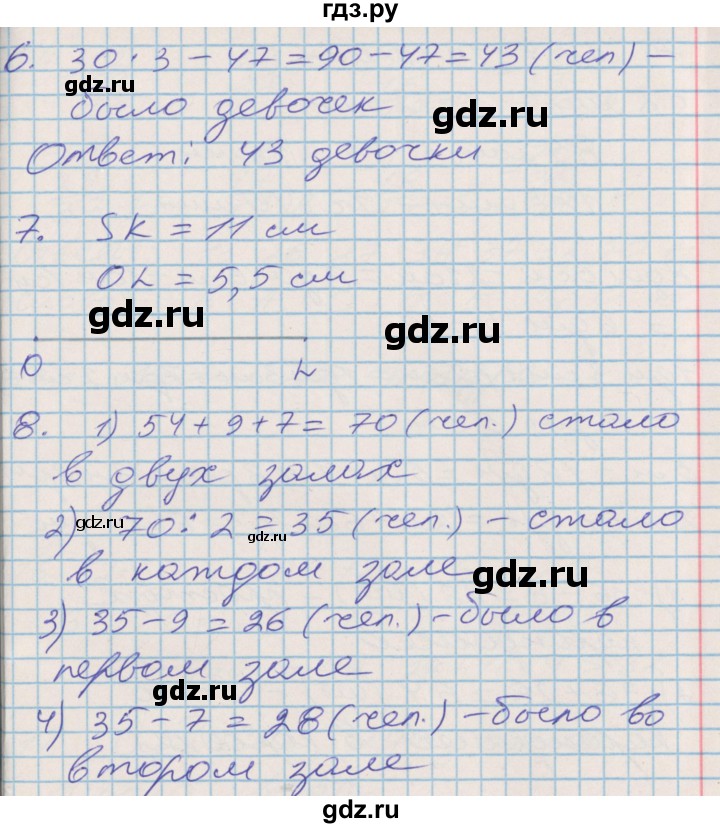 гдз.ру
6. 30·3-47=90-47=43 (чел) -
было девочек
gdz.ru
Ответ: 43 девочки
7. SK = 11 см
OL = 5,5 см
gdz.ru
gdz.ru
O L
8. 1) 54+9+7= 70 (чел.) стало
в двух залах
gdz.ru
2) 70:2=35 (чел.) - стало
gdz.ru
в каждом зале
gdz.ru
3) 35-9=26 (чел.) - было в
первом зале
gdz.ru
4) 35-7=28 (чел.) - было во
втором зале
gdz.ru
gdz.ru